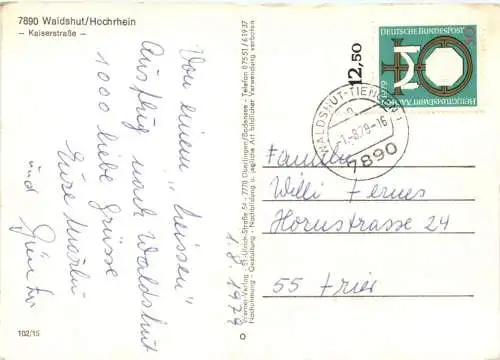 7890 Waldshut/Hochrhein
- Kaiserstraße -
Von einem "heissen"
Ausflug nach Waldshut
1000 liebe Grüsse
Eure
und
Günter
1.8.1979
102/15
Werner-Verlag - St.-Ulrich-Straße 54 - 7770 Überlingen/Bodensee - Telefon 07551/61937
Nachahmung - Gestaltung - Nachbildung u. jegliche Art bildlicher Verwendung verboten
12,50
DEUTSCHE BUNDESPOST
HEILIGTUMSFAHRT AACHEN
1979
WALDSHUT-TIENGEN 1
-1.-8.79-16
7890
Familie
Willi Fernes
Hornstrasse 24
55 Trier